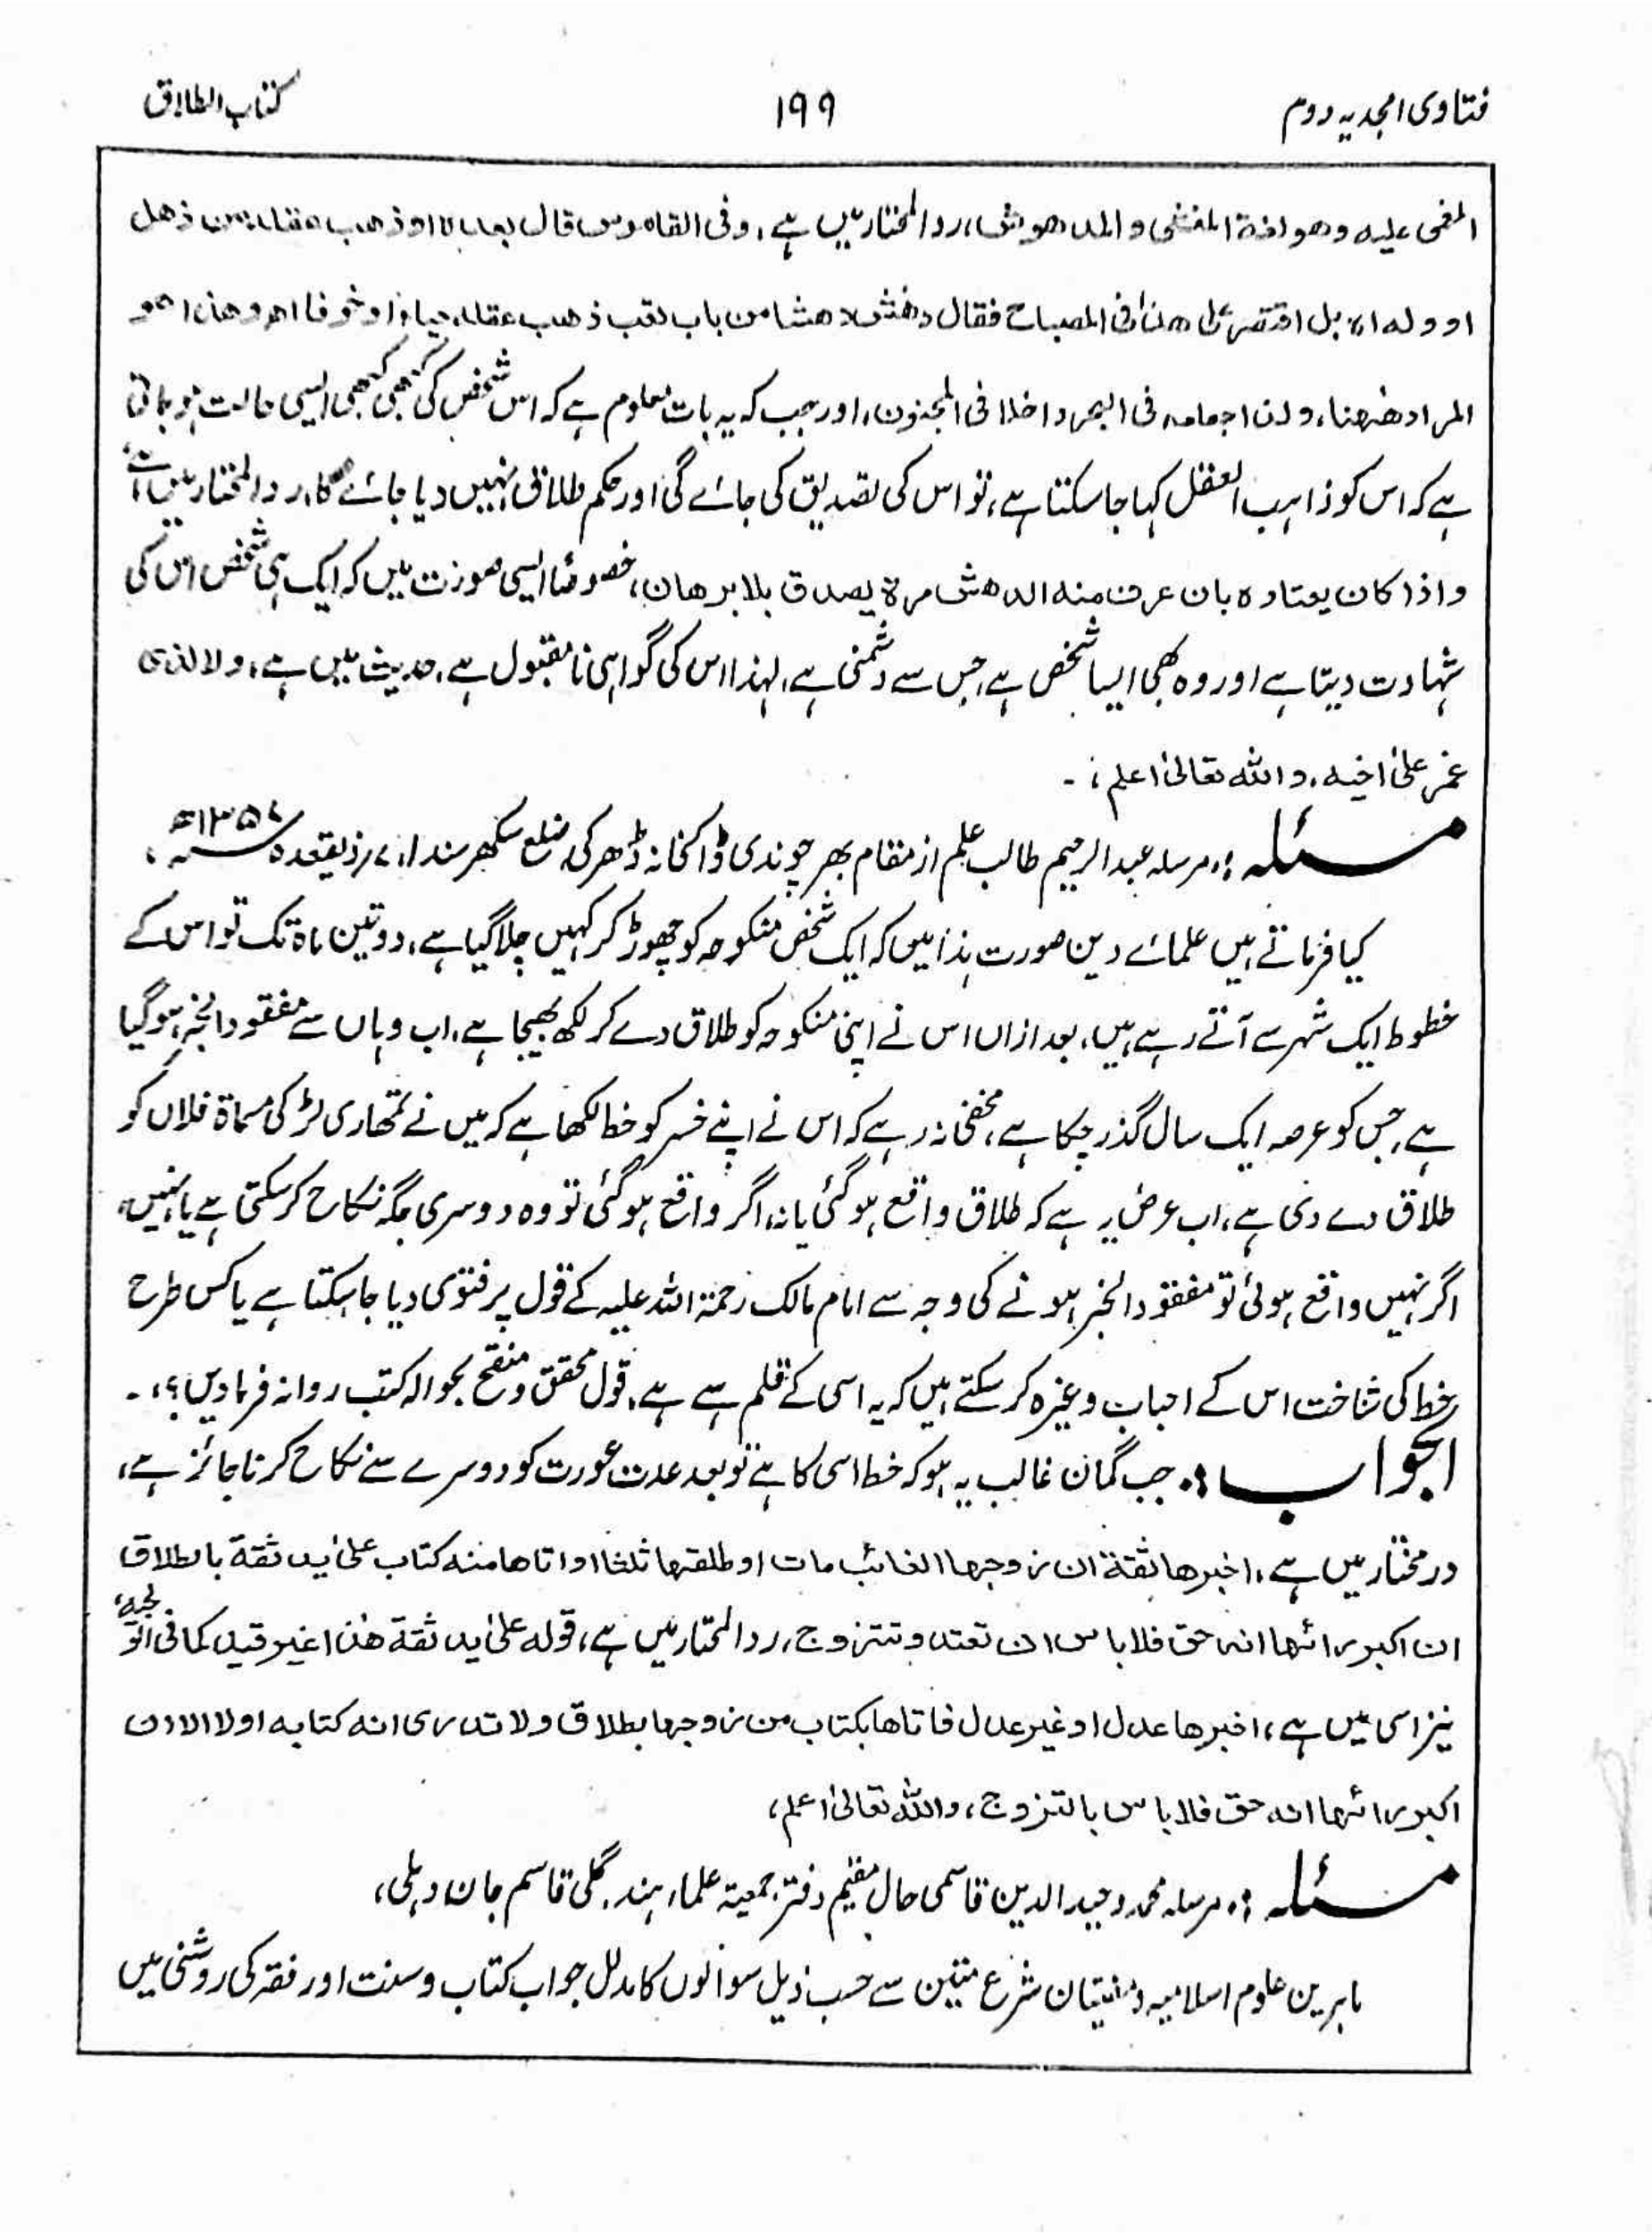 فتاوی امجدیہ دوم ۱۹۹ کتاب الطلاق
المغمی علیہ وھو لغۃ المغشی والمدھوش، ردالمحتار میں ہے، وفی القاموس قال بعدہ او ذھب عقلہ من ذھل
او ولہ اھ بل اقتصر علی ھذا فی المصباح فقال دھش دھشا من باب تعب ذھب عقلہ حیاءً او خوفا اھ وھذا ھو
المراد ھٰھنا، ولذا جعلہ فی البحر داخلا فی المجنون، اور جب کہ یہ بات معلوم ہے کہ اس شخص کی کبھی کبھی ایسی حالت ہو جاتی
ہے کہ اس کو ذاہب العقل کہا جا سکتا ہے، تو اس کی تصدیق کی جائے گی اور حکم طلاق نہیں دیا جائے گا، ردالمحتار میں ہے،
واذا کان یعتادہ بان عرف منہ الدھش مرۃ یصدق بلا برھان، خصوصًا ایسی صورت میں کہ ایک ہی شخص اس کی
شہادت دیتا ہے اور وہ بھی ایسا شخص ہے جس سے دشمنی ہے، لہٰذا اس کی گواہی نا مقبول ہے، حدیث میں ہے، ولا لذی
غمر علیٰ اخیہ، واللہ تعالیٰ اعلم، ۔
مسئلہ:، مرسلہ عبدالرحیم طالب علم از مقام بھرچونڈی ڈاکخانہ ڈھرکی ضلع سکھر سندا، ۷ ذیقعدہ
کیا فرماتے ہیں علمائے دین صورت ہذا میں کہ ایک شخص منکوحہ کو چھوڑ کر کہیں چلا گیا ہے، دو تین ماہ تک تو اس کے
خطوط ایک شہر سے آتے رہے ہیں، بعد ازاں اس نے اپنی منکوحہ کو طلاق دے کر لکھ بھیجا ہے، اب وہاں سے مفقود الخبر ہو گیا
ہے، جس کو عرصہ ایک سال گذر چکا ہے، مخفی نہ رہے کہ اس نے اپنے خسر کو خط لکھا ہے کہ میں نے تمھاری لڑکی مسماۃ فلاں کو
طلاق دے دی ہے، اب عرض یہ ہے کہ طلاق واقع ہو گئی یا نہ، اگر واقع ہو گئی تو وہ دوسری جگہ نکاح کر سکتی ہے یا نہیں،
اگر نہیں واقع ہوئی تو مفقود الخبر ہونے کی وجہ سے امام مالک رحمۃ اللہ علیہ کے قول پر فتویٰ دیا جا سکتا ہے یا کس طرح
خط کی شناخت اس کے احباب وغیرہ کر سکتے ہیں کہ یہ اسی کے قلم سے ہے، قول محقق و منقح بحوالہ کتب روانہ فرماویں؟، ۔
الجواب:، جب گمان غالب یہ ہو کہ خط اسی کا ہے تو بعد عدت عورت کو دوسرے سے نکاح کرنا جائز ہے،
درمختار میں ہے، اخبرھا ثقۃ ان زوجھا الغائب مات او طلقھا ثلٰثا او اتاھا منہ کتاب علیٰ ید ثقۃ بالطلاق
ان اکبر رائھا انہ حق فلا باس ان تعتد وتتزوج، ردالمحتار میں ہے، قولہ علیٰ ید ثقۃ ھٰذا غیر قید کما فی التوجہ،
نیز اسی میں ہے، اخبرھا عدل او غیر عدل فاتاھا بکتاب من زوجھا بطلاق ولا تدری انہ کتابہ او لا الا ان
اکبر رائھا انہ حق فلا باس بالتزوج، واللہ تعالیٰ اعلم،
مسئلہ:، مرسلہ محمد وحید الدین قاسمی حال مقیم دفتر جمعیۃ علماء ہند، گلی قاسم جان دہلی،
ماہرین علوم اسلامیہ و مفتیان شرع متین سے حسب ذیل سوالوں کا مدلل جواب کتاب و سنت اور فقہ کی روشنی میں